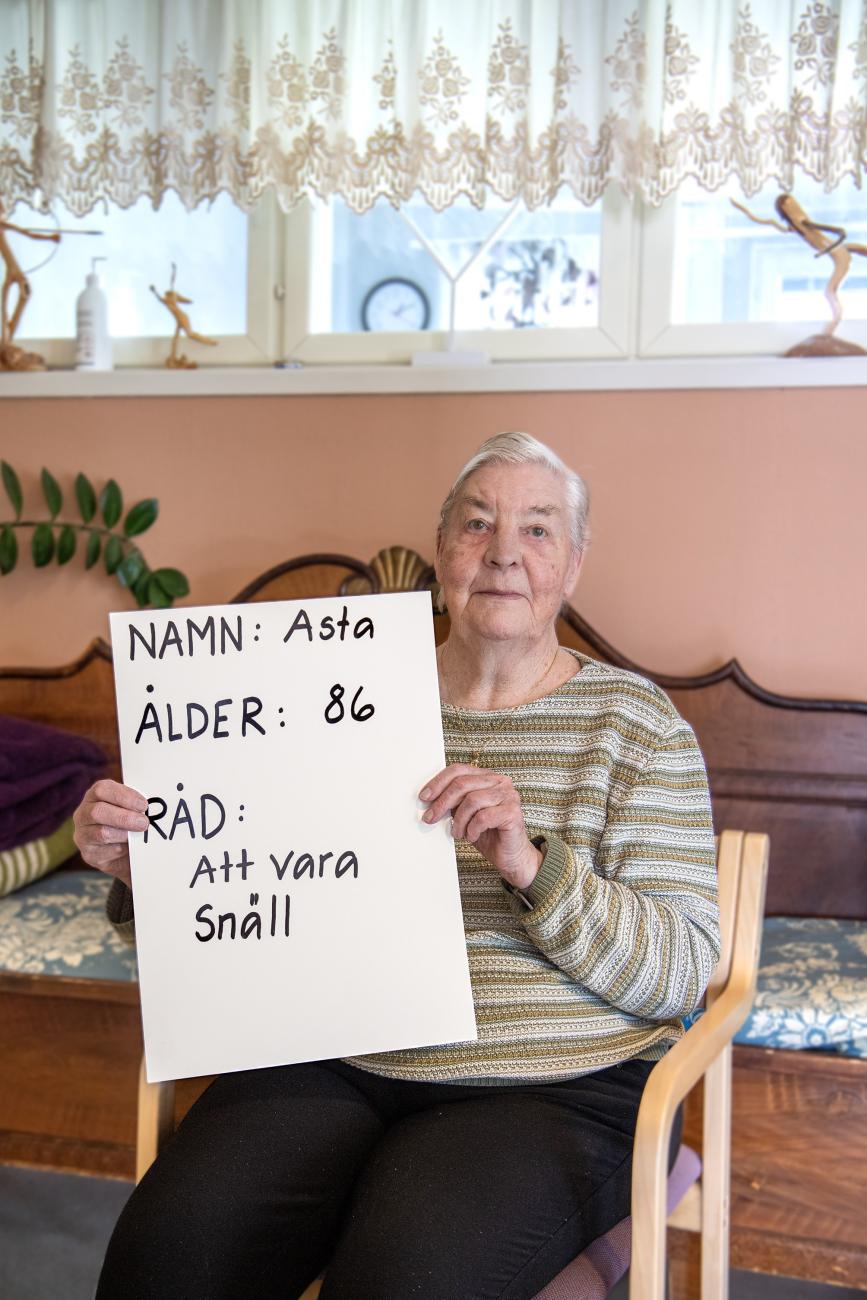 NAMN: Asta
ÅLDER: 86
RÅD:
Att vara
Snäll